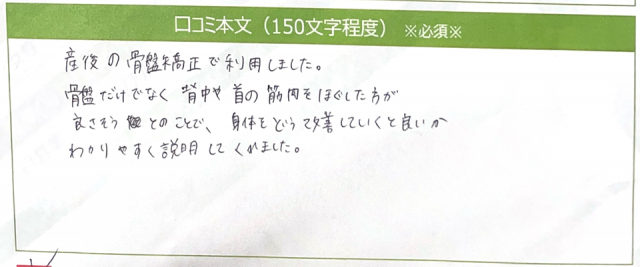 口コミ本文（150文字程度）※必須※
産後の骨盤矯正で利用しました。
骨盤だけでなく背中や首の筋肉をほぐした方が
良さそうとのことで、身体をどう改善していくと良いか
わかりやすく説明してくれました。